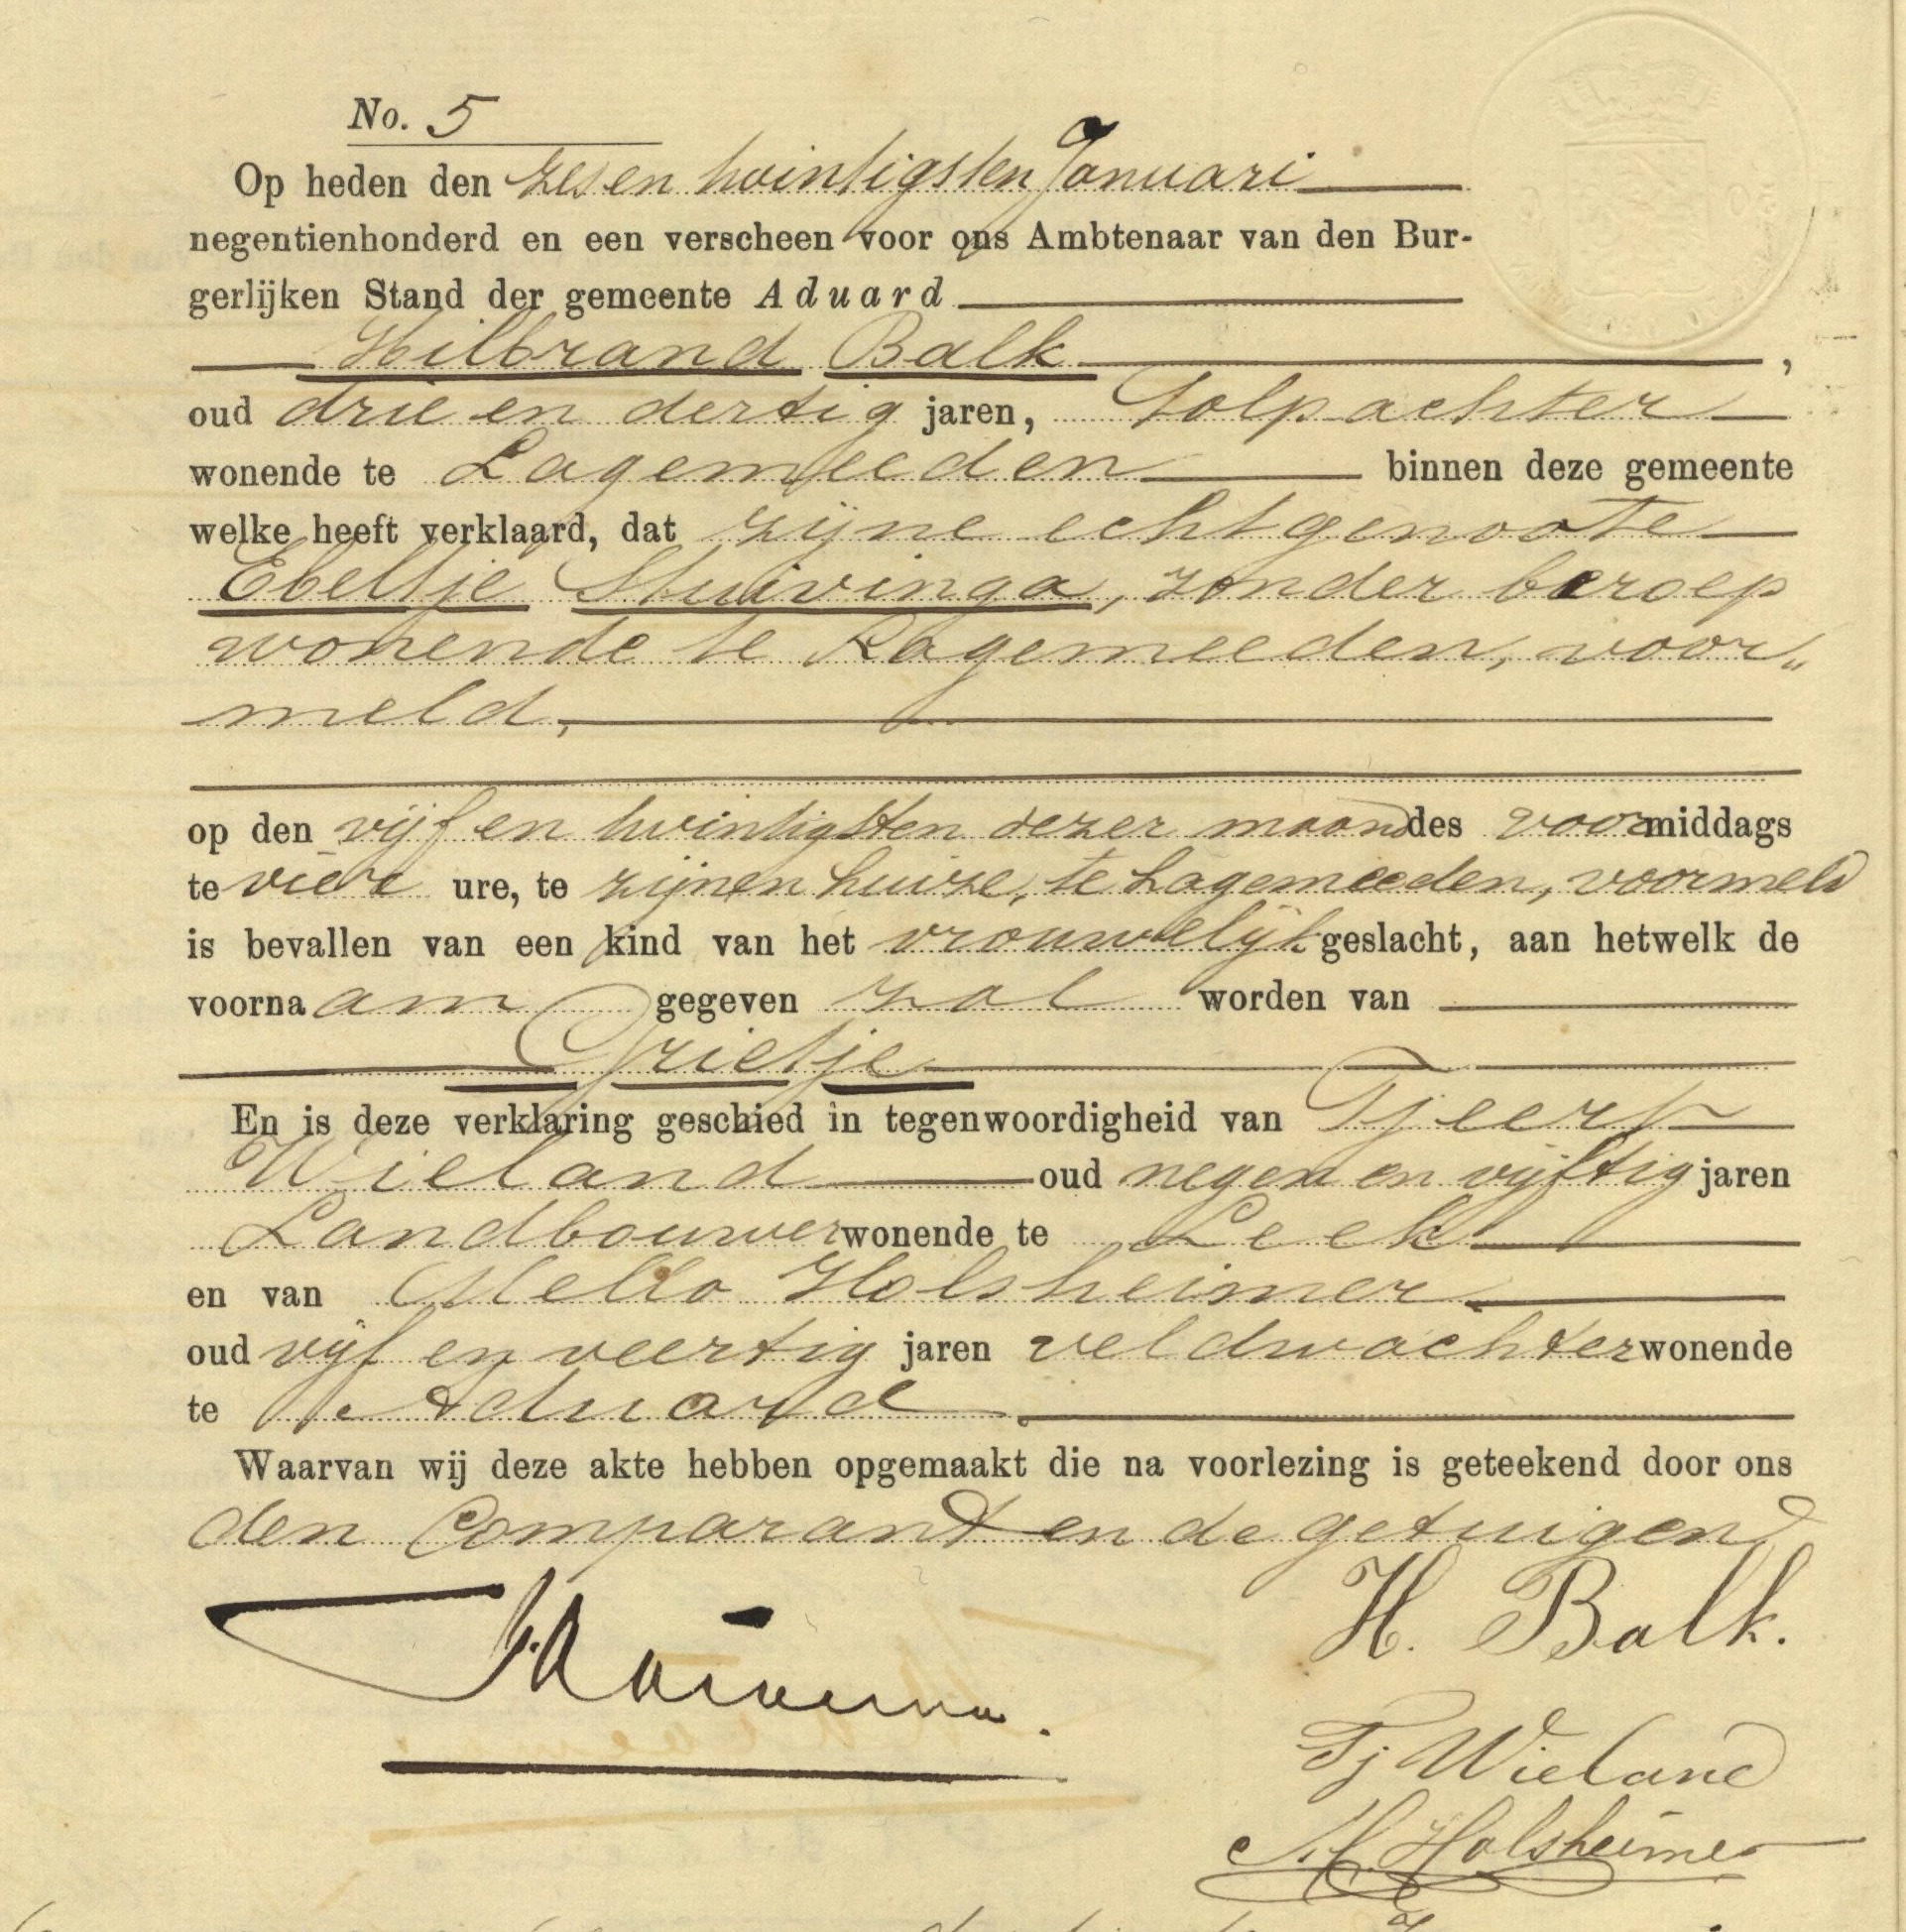 No. 5
Op heden den zes en twintigsten Januari
negentienhonderd en een verscheen voor ons Ambtenaar van den Bur-
gerlijken Stand der gemeente Aduard
Hilbrand Balk,
oud drie en dertig jaren, Tolpachter
wonende te Lagemeeden binnen deze gemeente
welke heeft verklaard, dat zijne echtgenoote
Ebeltje Stuivinga, zonder beroep
wonende te Lagemeeden, voor„
meld,
op den vijf en twintigsten dezer maand des voormiddags
te vier ure, te zijnen huize, te Lagemeeden, voormeld
is bevallen van een kind van het vrouwelijk geslacht, aan hetwelk de
voornaam gegeven zal worden van
Grietje
En is deze verklaring geschied in tegenwoordigheid van Tjeert
Wieland oud negen en vijftig jaren
Landbouwer wonende te Leek
en van Mello Holsheimer
oud vijf en veertig jaren veldwachter wonende
te Aduard.
Waarvan wij deze akte hebben opgemaakt die na voorlezing is geteekend door ons
den Comparant en de getuigen
H. Balk.
Tj Wieland
M. Holsheimer